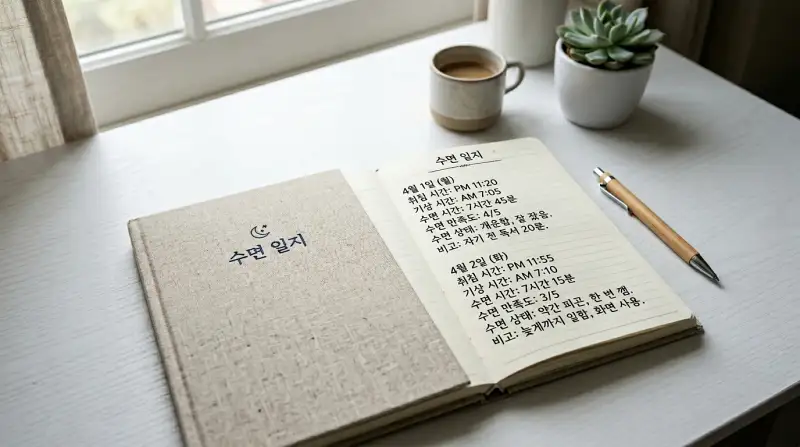 수면 일지
수면 일지
4월 1일 (월)
취침 시간: PM 11:20
기상 시간: AM 7:05
수면 시간: 7시간 45분
수면 만족도: 4/5
수면 상태: 개운함, 잘 잤음.
비고: 자기 전 독서 20분.
4월 2일 (화)
취침 시간: PM 11:55
기상 시간: AM 7:10
수면 시간: 7시간 15분
수면 만족도: 3/5
수면 상태: 약간 피곤, 한 번 깸.
비고: 늦게까지 일함, 화면 사용.